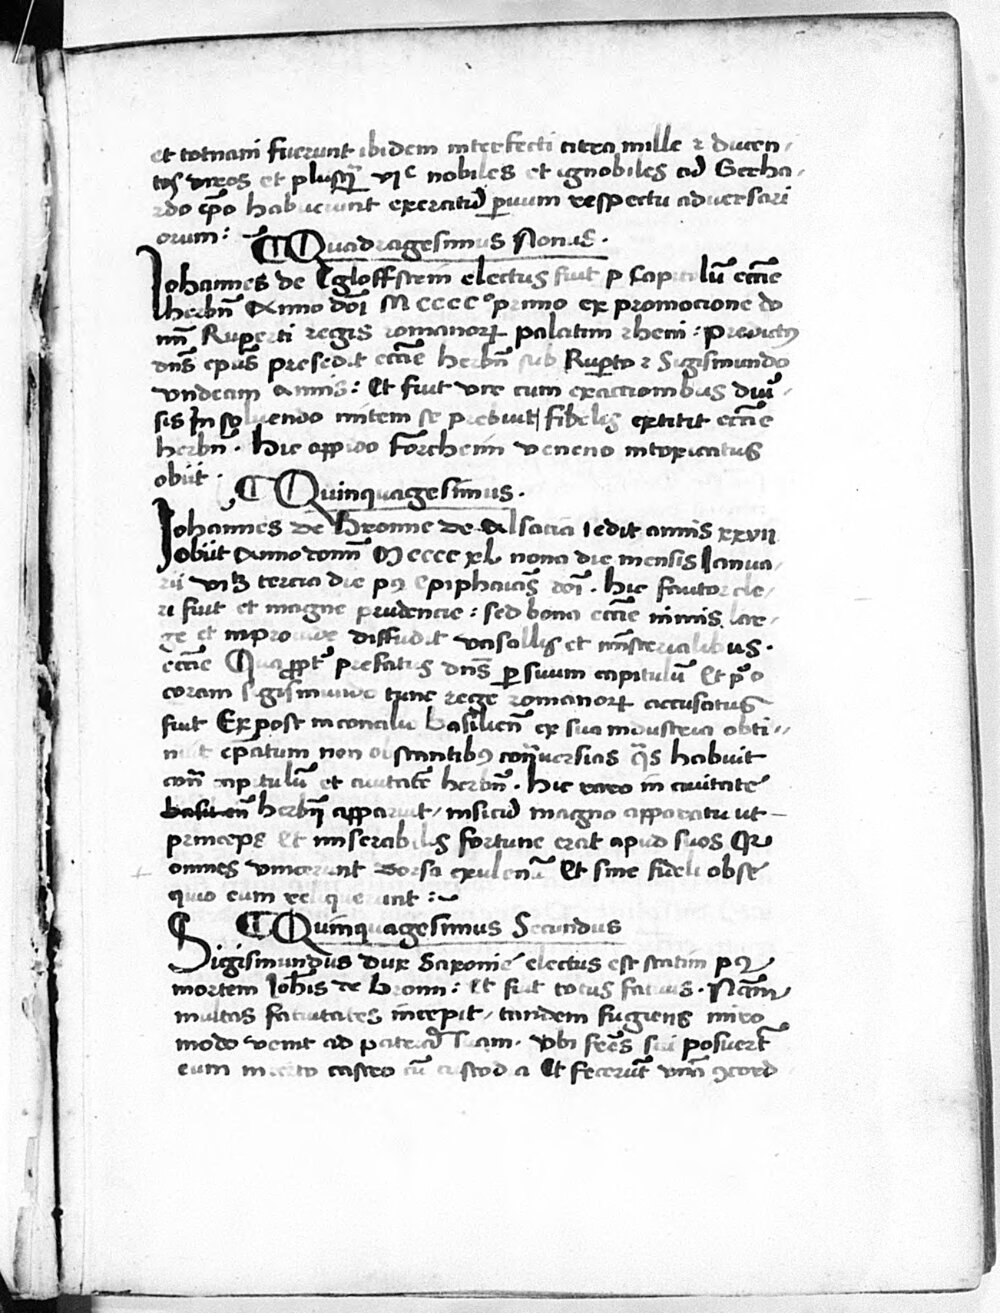 et tornati fuerunt ibidem interfecti citra mille ⁊ ducen
tos viros et plusq̄ vjᶜ nobiles et ignobiles et Gerha
rdo ep̄o habuerunt exercitū ꝑuum respectu adversari
orum:
Quadragesimus Nonus.
Johannes de Egloffstein electus fuit p Capitulū eccīe
herbn̄ Anno dn̄i Mcccc°primo ex promocione do
mī Ruperti regis romanorꝝ palatini rheni: predictꝰ
dn̄s ep̄us presedit eccīe herbn̄ sub Ruꝑto ⁊ Sigismundo
vndecim Annis: Et fuit vir cum exactionibus diū
sis In soluendo mitem se prebuit fidelis extitit eccīe
herbn̄. Hic oppido Forcheim veneno intoxicatus
obijt.
Quinquagesimus.
Johannes de Bronne de Alsacia sedit annis xxvij
Obijt Anno domī Mcccc xl nona die mensis Janua
rij vꝫ tercia die pꝰ Epiphaīas dn̄i. Hic fautor cle
ri fuit et magne prudencie: sed bona eccīe nimis lar
ge et improuide diffudit vasallis et mīsterialibus.
eccīe Qua ꝓpt prefatus dn̄s ꝑ suum capitulū Et pō
coram sigismundo tunc rege romanorꝝ accusatus
fuit Ex post in concilio basilien̄ ex sua industria obti
nuit ep̄atum non obstantibꝰ cont̄uersias q̄s habuit
con̄ capitulū et ciuitatē herbn̄. Hic raro in ciuitate
herbn̄ apparuit, in magno apparatu ut
princeps Et miserabilis fortune erat apud suos Qr
omnes vincerunt Et sine fideli obse
quio eum reliquerunt:
Quinquagesimus Secundus
Sigismundus dux Saxonie electus est statim pꝰ
mortem Joh̄is de bronn: Et fuit totus fatuus. Nam
multas fatuitates incepit, tandem fugiens miro
modo venit ad patriā suam. Vbi fr̄es sui posuert̄
eum in certo castro cū custodia Et fecerūt vnā ꝯcord